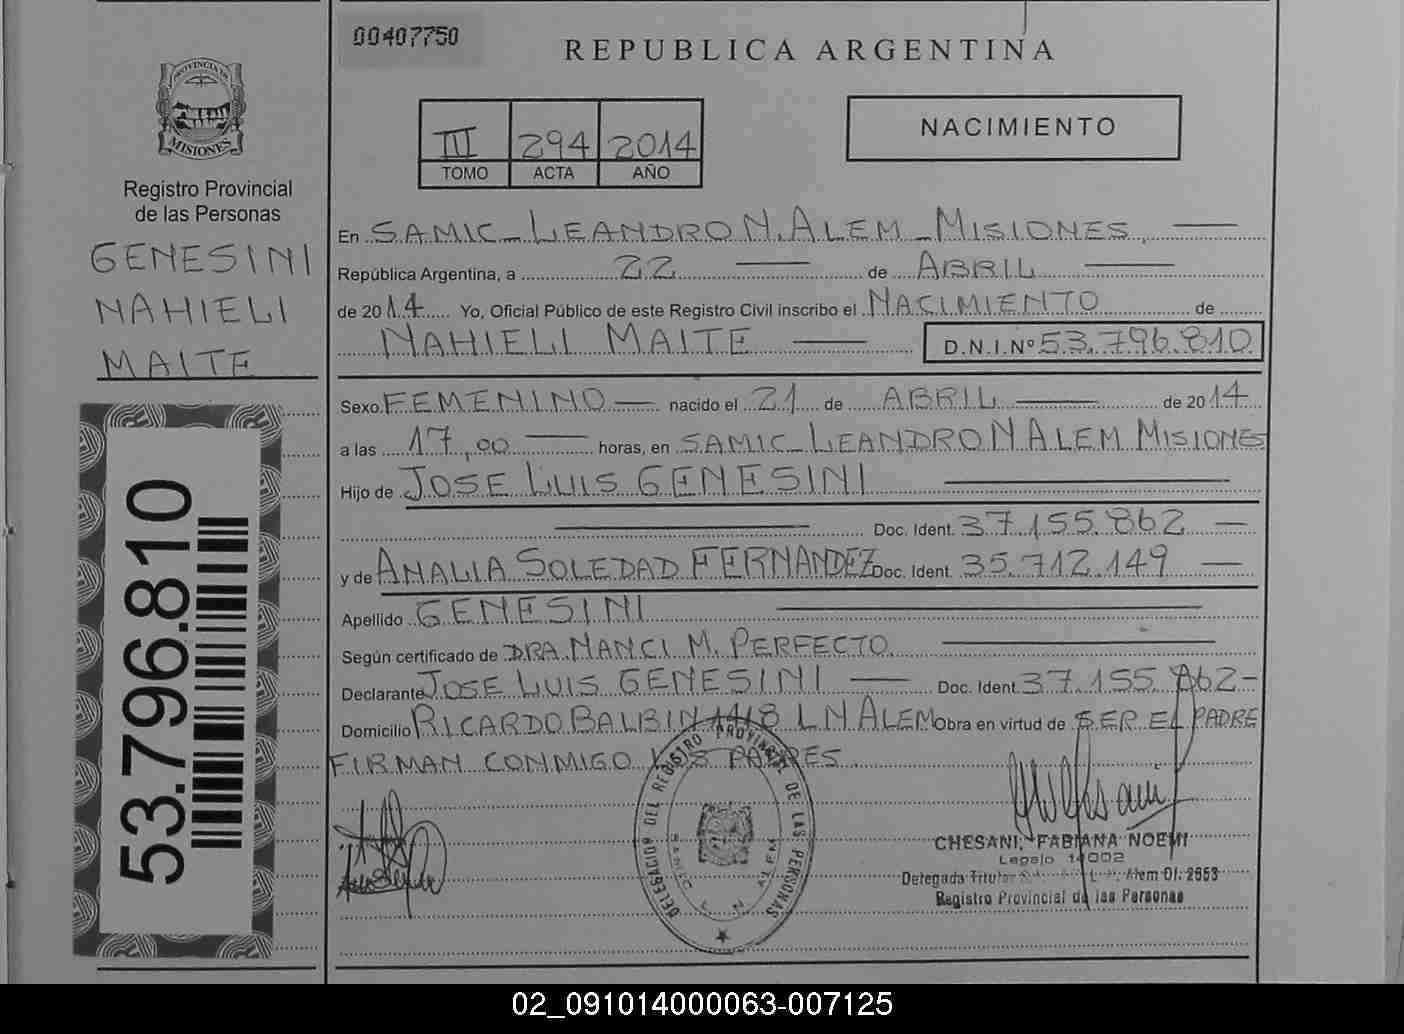 00407750
REPUBLICA ARGENTINA
PROVINCIA DE
MISIONES
Registro Provincial
de las Personas
GENESINI
NAHIELI
MAITE
53.796.810
III 294 2014
TOMO ACTA AÑO
NACIMIENTO
En SAMIC_LEANDRO N. ALEM_MISIONES,
República Argentina, a 22 de ABRIL
de 2014 Yo, Oficial Público de este Registro Civil inscribo el NACIMIENTO de
NAHIELI MAITE D.N.I.Nº 53.796.810
Sexo FEMENINO nacido el 21 de ABRIL de 2014
a las 17,00 horas, en SAMIC_LEANDRO N ALEM MISIONES
Hijo de JOSE LUIS GENESINI
Doc. Ident. 37.155.862
y de ANALIA SOLEDAD FERNANDEZ Doc. Ident. 35.712.149
Apellido GENESINI
Según certificado de DRA. NANCI M. PERFECTO
Declarante JOSE LUIS GENESINI Doc. Ident. 37.155.862-
Domicilio RICARDO BALBIN 1418 L N ALEM Obra en virtud de SER EL PADRE
FIRMAN CONMIGO LOS PADRES.
DELEGACION DEL REGISTRO PROVINCIAL DE LAS PERSONAS
SAMIC L. N. ALEM
CHESANI, FABIANA NOEMI
Legajo 14002
Delegada Titular Alem Of. 2653
Registro Provincial de las Personas
02_091014000063-007125